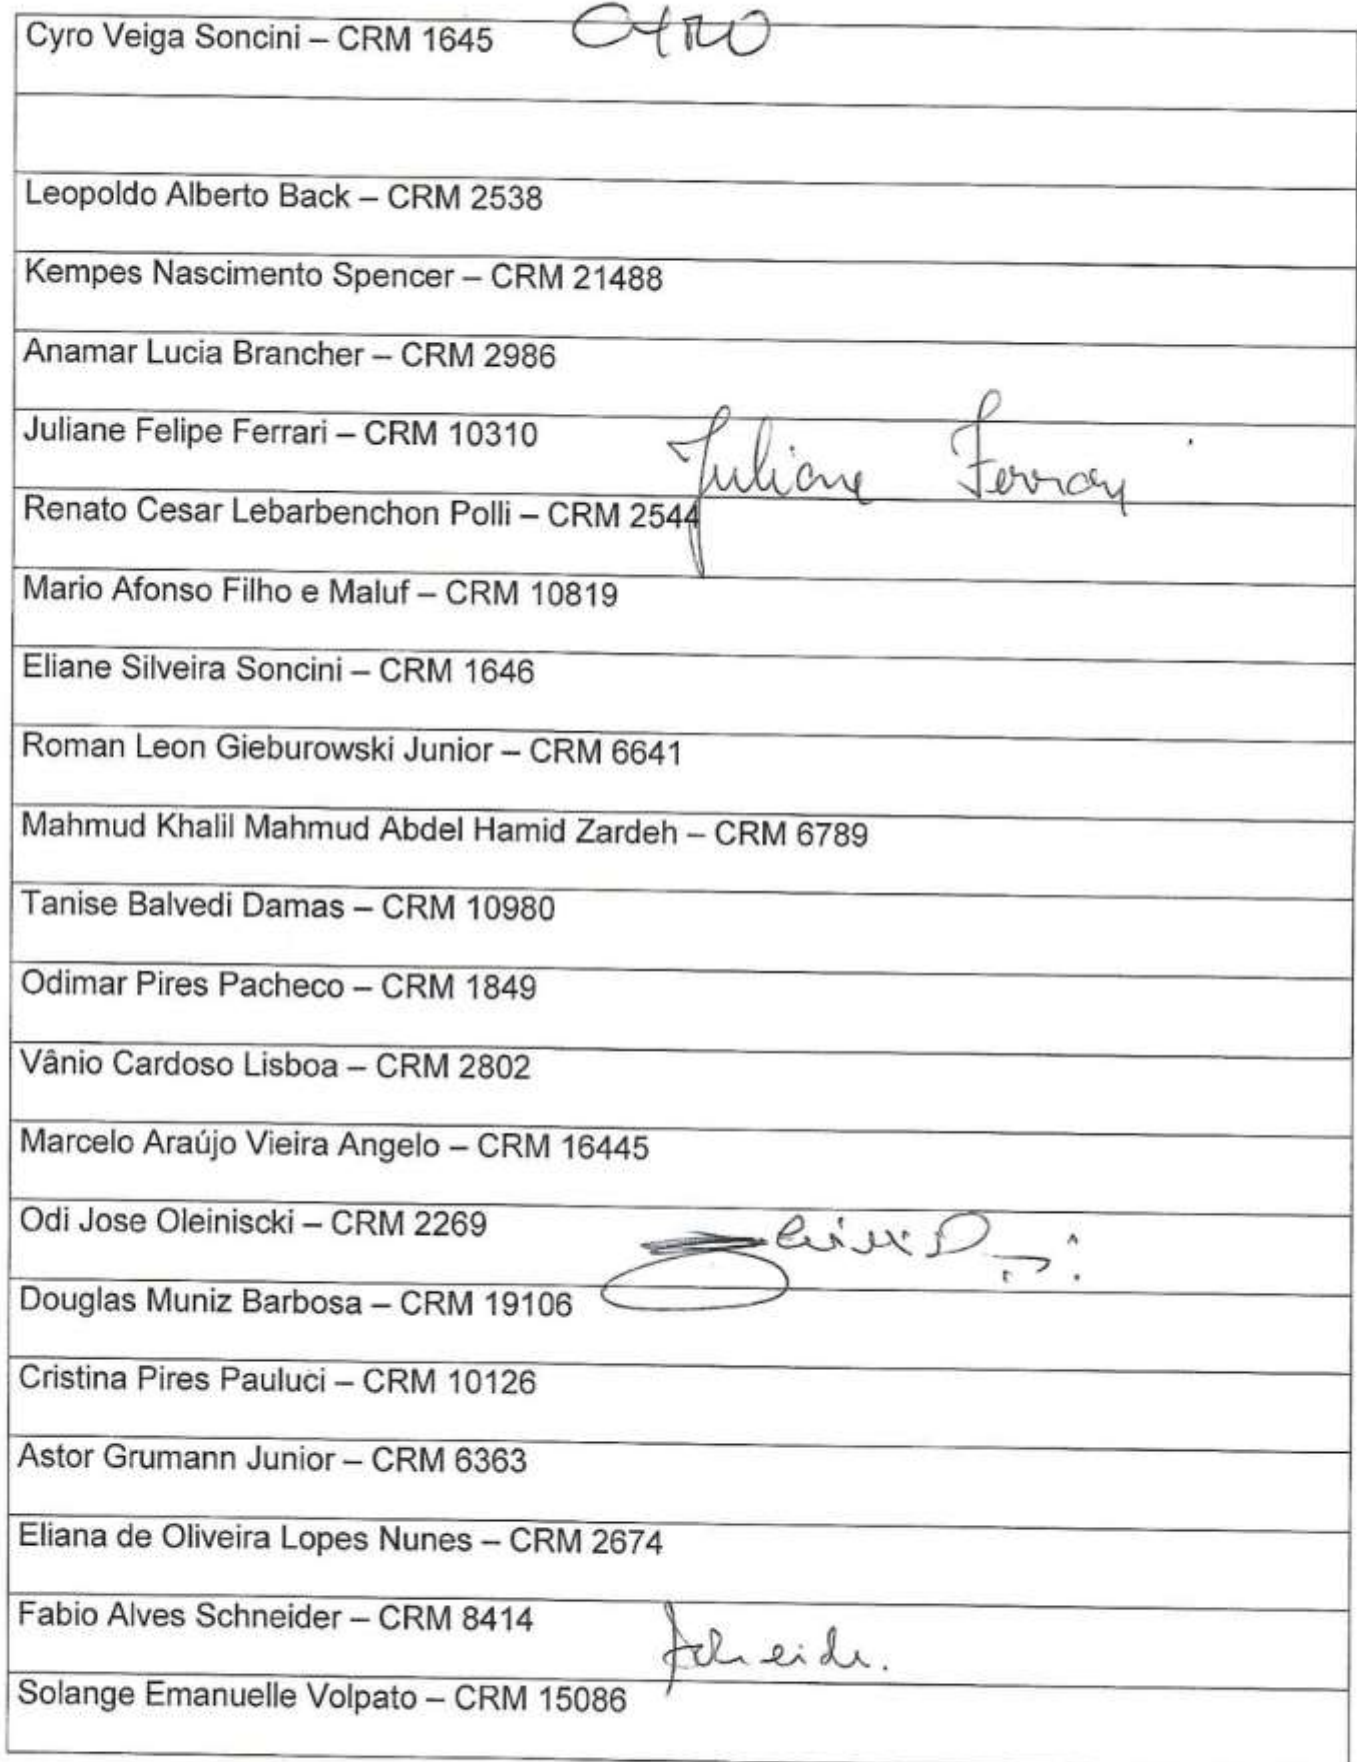 Cyro Veiga Soncini – CRM 1645 Cyro
Leopoldo Alberto Back – CRM 2538
Kempes Nascimento Spencer – CRM 21488
Anamar Lucia Brancher – CRM 2986
Juliane Felipe Ferrari – CRM 10310
Juliane Ferrari
Renato Cesar Lebarbenchon Polli – CRM 2544
Mario Afonso Filho e Maluf – CRM 10819
Eliane Silveira Soncini – CRM 1646
Roman Leon Gieburowski Junior – CRM 6641
Mahmud Khalil Mahmud Abdel Hamid Zardeh – CRM 6789
Tanise Balvedi Damas – CRM 10980
Odimar Pires Pacheco – CRM 1849
Vânio Cardoso Lisboa – CRM 2802
Marcelo Araújo Vieira Angelo – CRM 16445
Odi Jose Oleiniscki – CRM 2269
Douglas Muniz Barbosa – CRM 19106
Cristina Pires Pauluci – CRM 10126
Astor Grumann Junior – CRM 6363
Eliana de Oliveira Lopes Nunes – CRM 2674
Fabio Alves Schneider – CRM 8414
Solange Emanuelle Volpato – CRM 15086